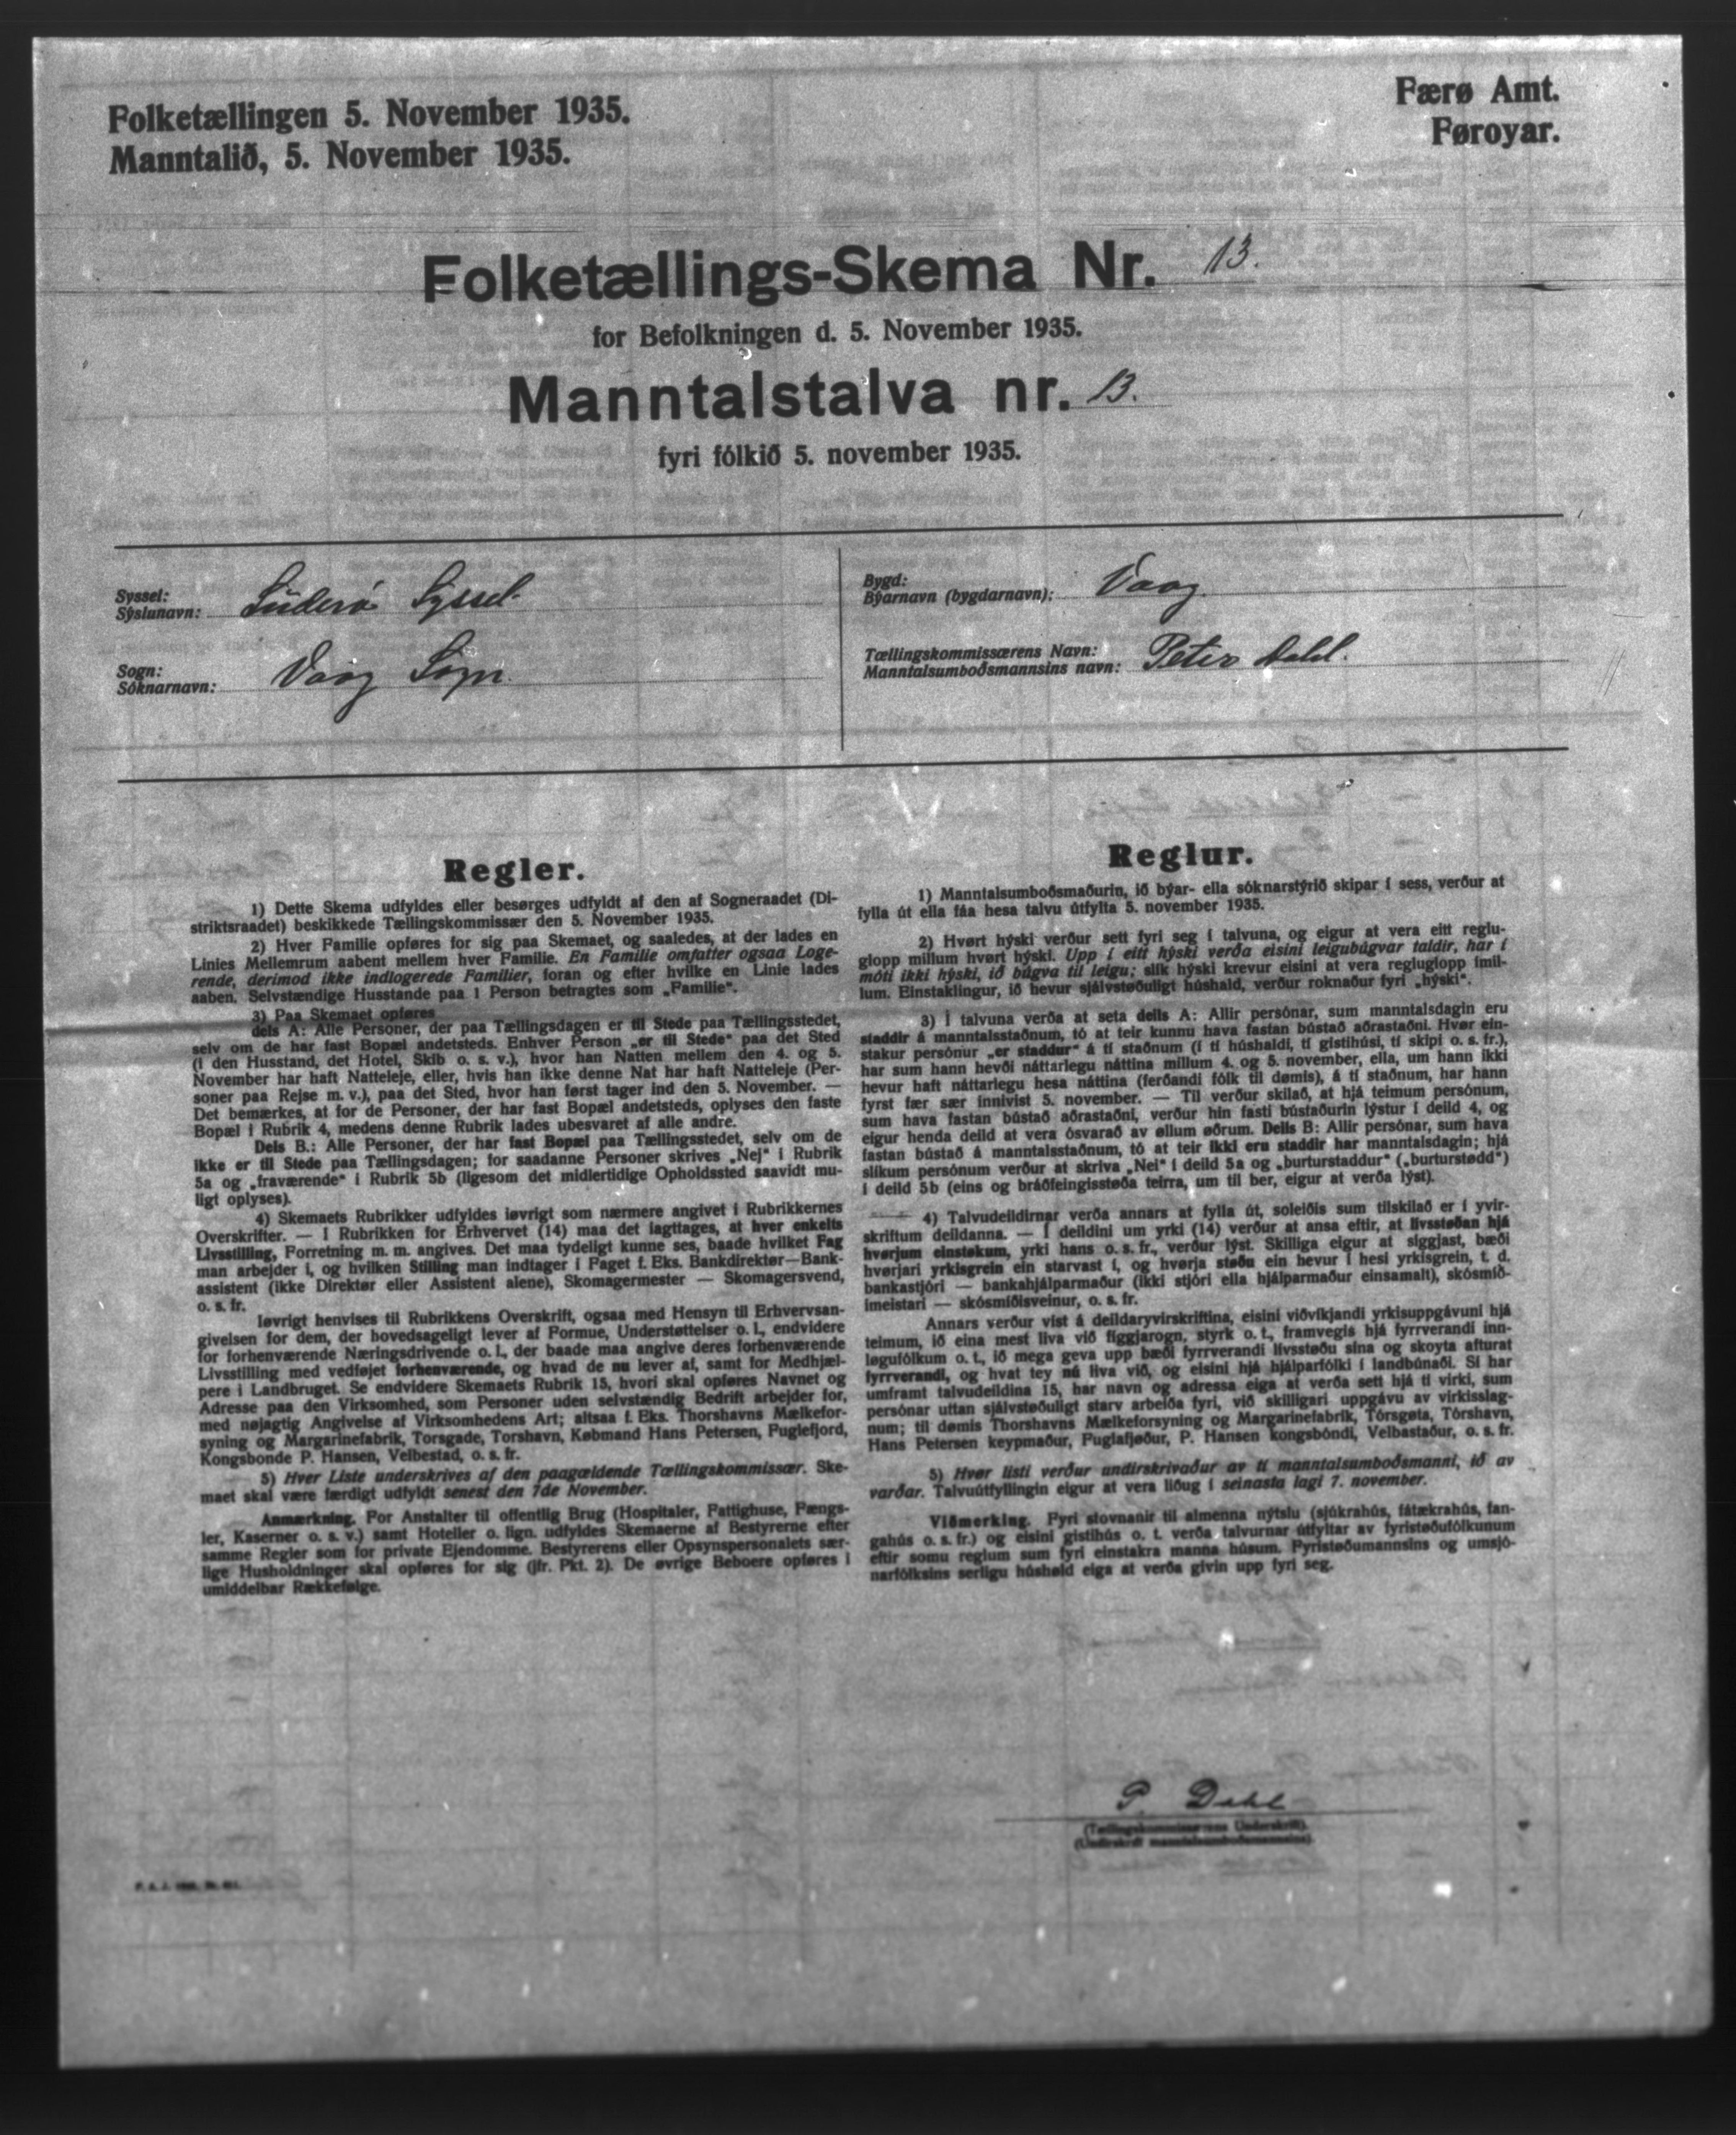 Folketællingen 5. November 1935.
Manntalið, 5. November 1935.
Færø Amt.
Føroyar.
Folketællings-Skema Nr. 13.
for Befolkningen d. 5. November 1935.
Manntalstalva nr. 13.
fyri fólkið 5. november 1935.
Syssel:
Sýslunavn: Süderø Syssel.
Sogn:
Sóknarnavn: Vaag Sogn.
Bygd:
Býarnavn (bygdarnavn): Vaag.
Tællingskommissærens Navn:
Manntalsumboðsmannsins navn: Peter Dahl.
Regler.
1) Dette Skema udfyldes eller besørges udfyldt af den af Sogneraadet (Di-
striktsraadet) beskikkede Tællingskommissær den 5. November 1935.
2) Hver Familie opføres for sig paa Skemaet, og saaledes, at der lades en
Linies Mellemrum aabent mellem hver Familie. En Familie omfatter ogsaa Loge-
rende, derimod ikke indlogerede Familier, foran og efter hvilke en Linie lades
aaben. Selvstændige Husstande paa 1 Person betragtes som „Familie“.
3) Paa Skemaet opføres
dels A: Alle Personer, der paa Tællingsdagen er til Stede paa Tællingsstedet,
selv om de har fast Bopæl andetsteds. Enhver Person „er til Stede“ paa det Sted
(i den Husstand, det Hotel, Skib o. s. v.), hvor han Natten mellem den 4. og 5.
November har haft Natteleje, eller, hvis han ikke denne Nat har haft Natteleje (Per-
soner paa Rejse m. v.), paa det Sted, hvor han først tager ind den 5. November. —
Det bemærkes, at for de Personer, der har fast Bopæl andetsteds, oplyses den faste
Bopæl i Rubrik 4, medens denne Rubrik lades ubesvaret af alle andre.
Dels B.: Alle Personer, der har fast Bopæl paa Tællingsstedet, selv om de
ikke er til Stede paa Tællingsdagen; for saadanne Personer skrives „Nej“ i Rubrik
5a og „fraværende“ i Rubrik 5b (ligesom det midlertidige Opholdssted saavidt mu-
ligt oplyses).
4) Skemaets Rubrikker udfyldes iøvrigt som nærmere angivet i Rubrikkernes
Overskrifter. — I Rubrikken for Erhvervet (14) maa det iagttages, at hver enkelts
Livsstilling, Forretning m. m. angives. Det maa tydeligt kunne ses, baade hvilket Fag
man arbejder i, og hvilken Stilling man indtager i Faget f. Eks. Bankdirektør—Bank-
assistent (ikke Direktør eller Assistent alene), Skomagermester — Skomagersvend,
o. s. fr.
Iøvrigt henvises til Rubrikkens Overskrift, ogsaa med Hensyn til Erhvervsan-
givelsen for dem, der hovedsageligt lever af Formue, Understøttelser o. l., endvidere
for forhenværende Næringsdrivende o. l., der baade maa angive deres forhenværende
Livsstilling med vedføjet forhenværende, og hvad de nu lever af, samt for Medhjæl-
pere i Landbruget. Se endvidere Skemaets Rubrik 15, hvori skal opføres Navnet og
Adresse paa den Virksomhed, som Personer uden selvstændig Bedrift arbejder for,
med nøjagtig Angivelse af Virksomhedens Art; altsaa f. Eks. Thorshavns Mælkefor-
syning og Margarinefabrik, Torsgade, Torshavn, Købmand Hans Petersen, Fuglefjord,
Kongsbonde P. Hansen, Velbestad, o. s. fr.
5) Hver Liste underskrives af den paagældende Tællingskommissær. Ske-
maet skal være færdigt udfyldt senest den 7de November.
Anmærkning. For Anstalter til offentlig Brug (Hospitaler, Fattighuse, Fængs-
ler, Kaserner o. s. v.) samt Hoteller o. lign. udfyldes Skemaerne af Bestyrerne efter
samme Regler som for private Ejendomme. Bestyrerens eller Opsynspersonalets sær-
lige Husholdninger skal opføres for sig (jfr. Pkt. 2). De øvrige Beboere opføres i
umiddelbar Rækkefølge.
Reglur.
1) Manntalsumboðsmaðurin, ið býar- ella sóknarstýrið skipar í sess, verður at
fylla út ella fáa hesa talvu útfylta 5. november 1935.
2) Hvørt hýski verður sett fyri seg í talvuna, og eigur at vera eitt reglu-
glopp millum hvørt hýski. Upp í eitt hýski verða eisini leigubúgvar taldir, har í
móti ikki hýski, ið búgva til leigu; slík hýski krevur eisini at vera regluglopp ímil-
lum. Einstaklingur, ið hevur sjálvstøðuligt húshald, verður roknaður fyri „hýski“.
3) Í talvuna verða at seta dells A: Allir persónar, sum manntalsdagin eru
staddir á manntalsstaðnum, tó at teir kunnu hava fastan bústað aðrastaðni. Hvør ein-
stakur persónur „er staddur“ á tí staðnum (í tí húshaldi, tí gistihúsi, tí skipi o. s. fr.),
har sum hann hevði náttarlegu náttina millum 4. og 5. november, ella, um hann ikki
hevur haft náttarlegu hesa náttina (ferðandi fólk til dømis), á tí staðnum, har hann
fyrst fær sær innivist 5. november. — Til verður skilað, at hjá teimum persónum,
sum hava fastan bústað aðrastaðni, verður hin fasti bústaðurin lýstur í deild 4, og
eigur henda deild at vera ósvarað av øllum øðrum. Dells B: Allir persónar, sum hava
fastan bústað á manntalsstaðnum, tó at teir ikki eru staddir har manntalsdagin; hjá
slíkum persónum verður at skriva „Nei“ í deild 5a og „burturstaddur“ („burturstødd“)
í deild 5b (eins og bráðfeingisstøða teirra, um til ber, eigur at verða lýst).
4) Talvudeildirnar verða annars at fylla út, soleiðis sum tilskilað er í yvir-
skriftum deildanna. — Í deildini um yrki (14) verður at ansa eftir, at livsstøðan hjá
hvørjum einstøkum, yrki hans o. s. fr., verður lýst. Skilliga eigur at siggjast, bæði
hvørjari yrkisgrein ein starvast í, og hvørja støðu ein hevur í hesi yrkisgrein, t. d.
bankastjóri — bankahjálparmaður (ikki stjóri ella hjálparmaður einsamalt), skósmið-
imeistari — skósmiðisveinur, o. s. fr.
Annars verður víst á deildaryvirskriftina, eisini viðvíkjandi yrkisuppgávuni hjá
teimum, ið eina mest liva við figgjarogn, styrk o. t., framvegis hjá fyrrverandi inn-
løgufólkum o. t., ið mega geva upp bæði fyrrverandi livsstøðu sína og skoyta afturat
fyrrverandi, og hvat tey nú liva við, og eisini hjá hjálparfólki í landbúnaði. Sí har
umframt talvudeildina 15, har navn og adressa eiga at verða sett hjá tí virki, sum
persónar uttan sjálvstøðuligt starv arbeiða fyri, við skilligari uppgávu av virkisslag-
num; til dømis Thorshavns Mælkeforsyning og Margarinefabrik, Tórsgøta, Tórshavn,
Hans Petersen keypmaður, Fuglafjøður, P. Hansen kongsbóndi, Velbastaður, o. s. fr.
5) Hvør listi verður undirskrivaður av tí manntalsumboðsmanni, ið av
varðar. Talvuútfyllingin eigur at vera liðug í seinasta lagi 7. november.
Viðmerking. Fyri stovnanir til almenna nýtslu (sjúkrahús, fátækrahús, fan-
gahús o. s. fr.) og eisini gistihús o. t. verða talvurnar útfyltar av fyristøðufólkunum
eftir somu reglum sum fyri einstakra manna húsum. Fyristøðumannsins og umsjó-
narfólksins serligu húshøld eiga at verða givin upp fyri seg.
P. Dahl
(Tællingskommissærens Underskrift).
(Undirskrift manntalsumboðsmannsins).